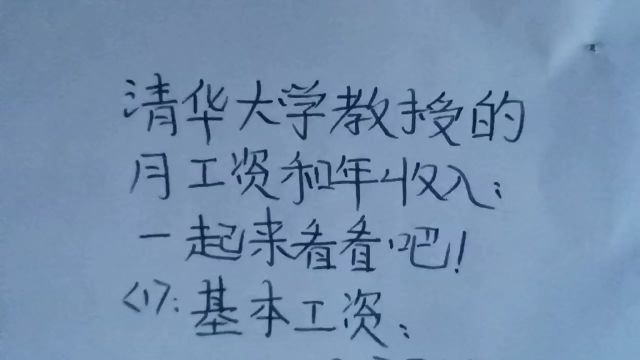 清华大学教授的
月工资和年收入:
一起来看看吧!
<1>:基本工资: